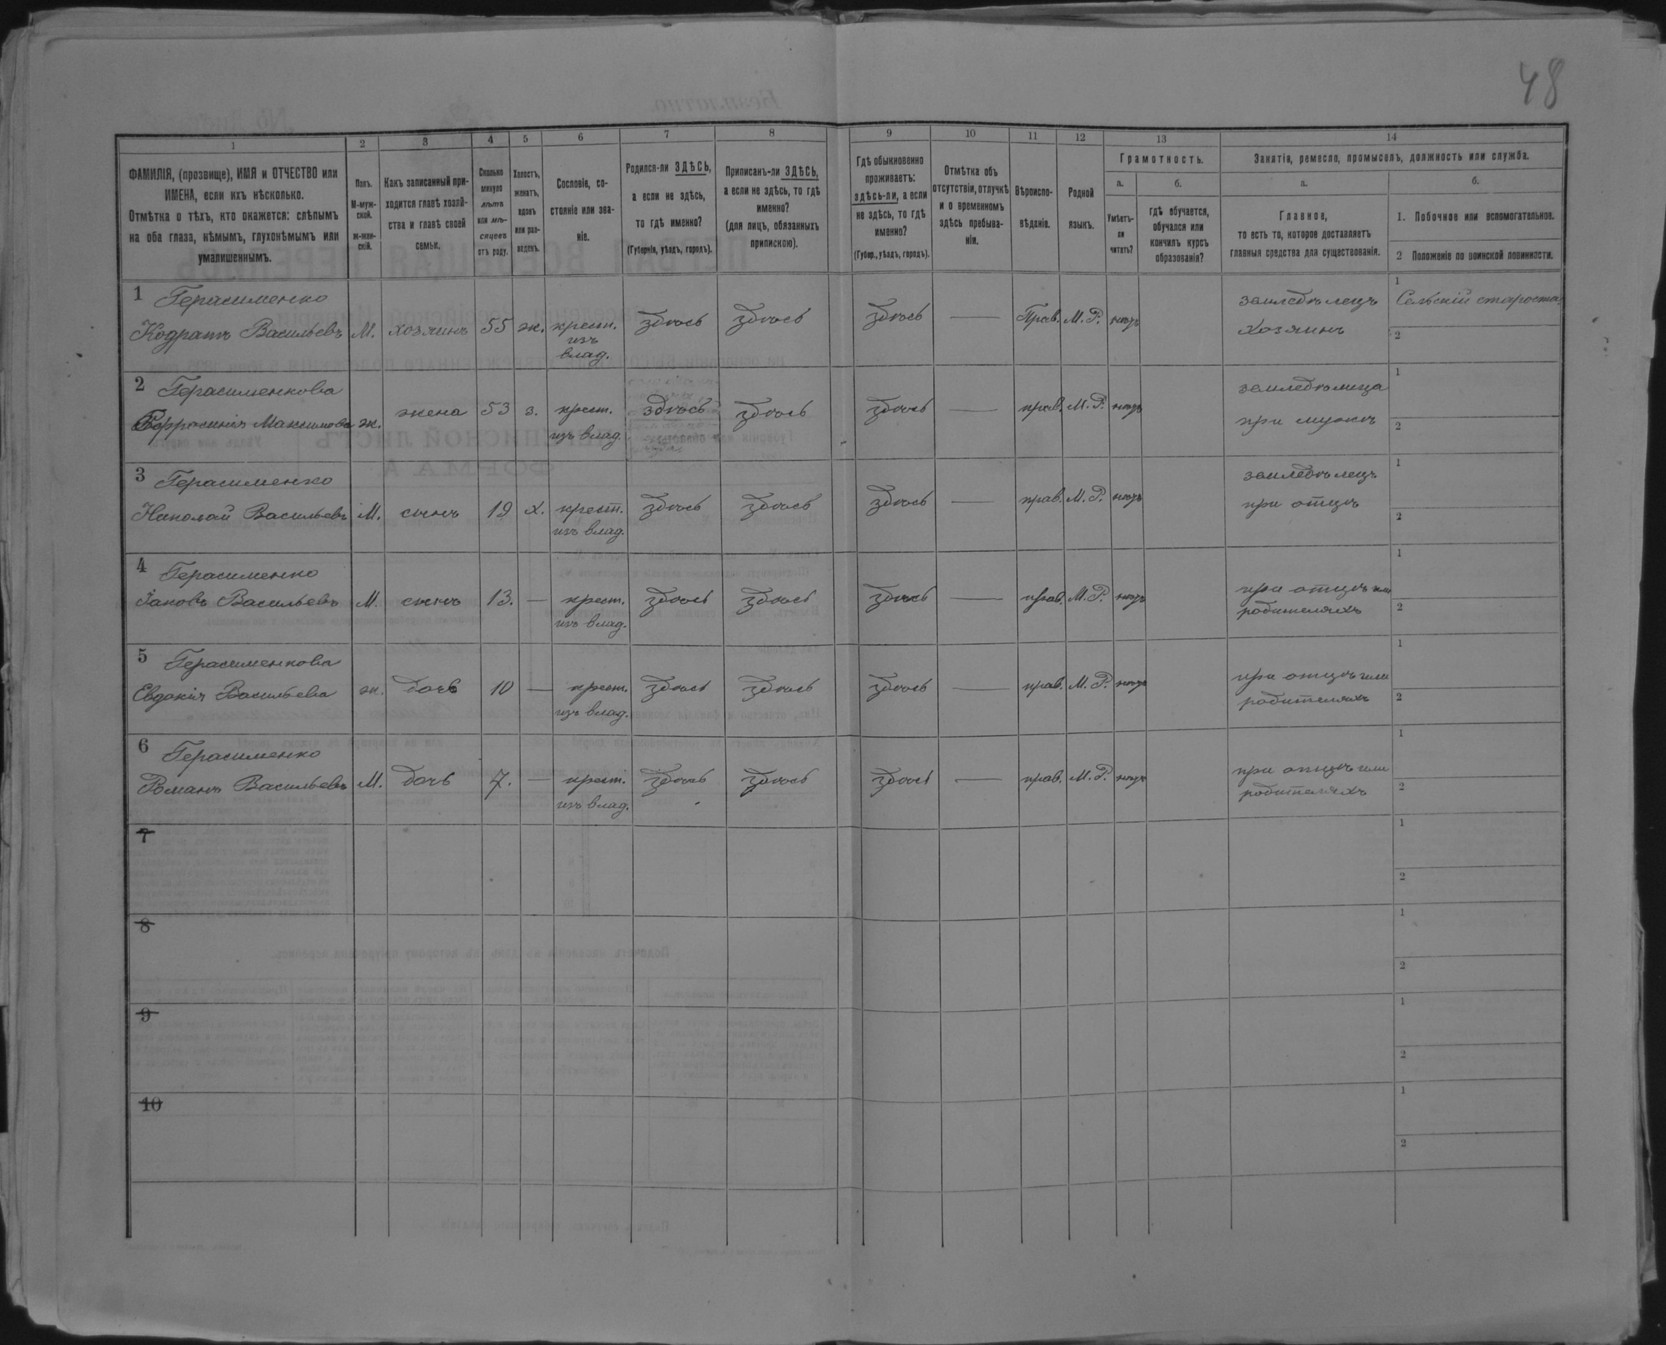 48
1
2
3
4
5
6
7
8
9
10
11
12
13
14
ФАМИЛІЯ, (прозвище), ИМЯ и ОТЧЕСТВО или
ИМЕНА, если ихъ нѣсколько.
Отмѣтка о тѣхъ, кто окажется: слѣпымъ
на оба глаза, нѣмымъ, глухонѣмымъ или
умалишеннымъ.
Полъ.
М-муж-
ской.
ж-жен-
скій.
Какъ записанный при-
ходится главѣ хозяй-
ства и главѣ своей
семьи.
Сколько
минуло
лѣтъ
или мѣ-
сяцевъ
отъ роду.
Холостъ,
женатъ,
вдовъ
или раз-
веденъ.
Сословіе, со-
стояніе или зва-
ніе.
Родился-ли ЗДѢСЬ,
а если не здѣсь,
то гдѣ именно?
(Губернія, уѣздъ, городъ).
Приписанъ-ли ЗДѢСЬ,
а если не здѣсь, то гдѣ
именно?
(для лицъ, обязанныхъ
припискою).
Гдѣ обыкновенно
проживаетъ:
здѣсь-ли, а если
не здѣсь, то гдѣ
именно?
(Губер., уѣздъ, городъ).
Отмѣтка объ
отсутствіи, отлучкѣ
и о временномъ
здѣсь пребыва-
ніи.
Вѣроиспо-
вѣданіе.
Родной
языкъ.
Грамотность.
а.
Умѣетъ-
ли
читать?
б.
гдѣ обучается,
обучался или
кончилъ курсъ
образованія?
Занятіе, ремесло, промыселъ, должность или служба.
а.
Главное,
то есть то, которое доставляетъ
главныя средства для существованія.
б.
1. Побочное или вспомогательное.
2 Положеніе по воинской повинности.
1 Герасименко
Кодратъ Васильевъ М. хозяинъ 55 ж. крест. здѣсь здѣсь здѣсь — Прав. М. Р. нѣтъ
изъ
влад.
земледѣлецъ
хозяинъ
1 Сельскій староста
2
2 Герасименкова
Ефросинія Максимова ж. жена 53 з. крест. здѣсь здѣсь здѣсь — прав. М. Р. нѣтъ
изъ влад.
земледѣлица
при мужѣ
1
2
3 Герасименко
Николай Васильевъ М. сынъ 19 х. крест. здѣсь здѣсь здѣсь — прав. М. Р. нѣтъ
изъ влад.
земледѣлецъ
при отцѣ
1
2
4 Герасименко
Іаковъ Васильевъ М. сынъ 13. — крест. здѣсь здѣсь здѣсь — прав. М. Р. нѣтъ
изъ влад.
при отцѣ или
родителяхъ
1
2
5 Герасименкова
Евдокія Васильева ж. дочь 10 — крест. здѣсь здѣсь здѣсь — прав. М. Р. нѣтъ
изъ влад.
при отцѣ или
родителяхъ
1
2
6 Герасименко
Романъ Васильевъ М. дочь 7. — крест. здѣсь здѣсь здѣсь — прав. М. Р. нѣтъ
изъ влад.
при отцѣ или
родителяхъ
1
2
7
1
2
8
1
2
9
1
2
10
1
2